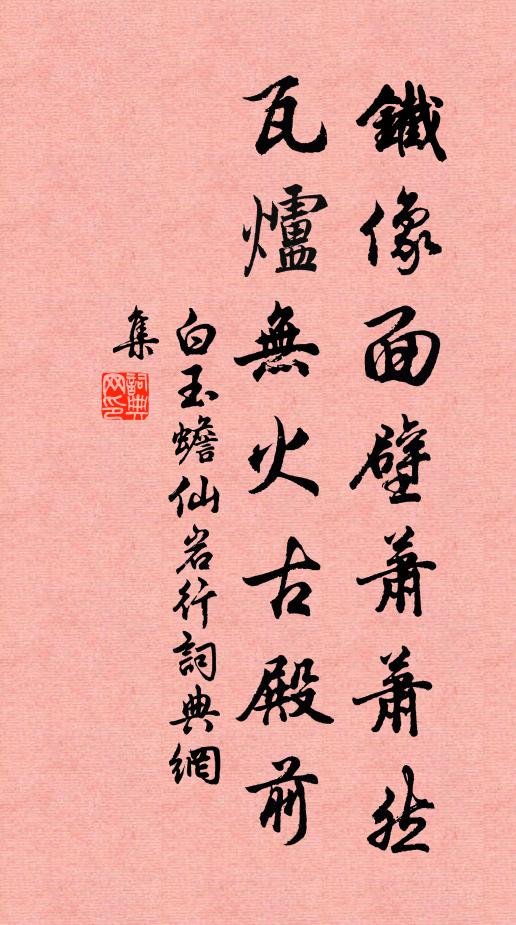 鐵像面壁蕭蕭然
瓦爐無火古殿前
白玉蟾仙岩行詞典網
集
詞典
网印